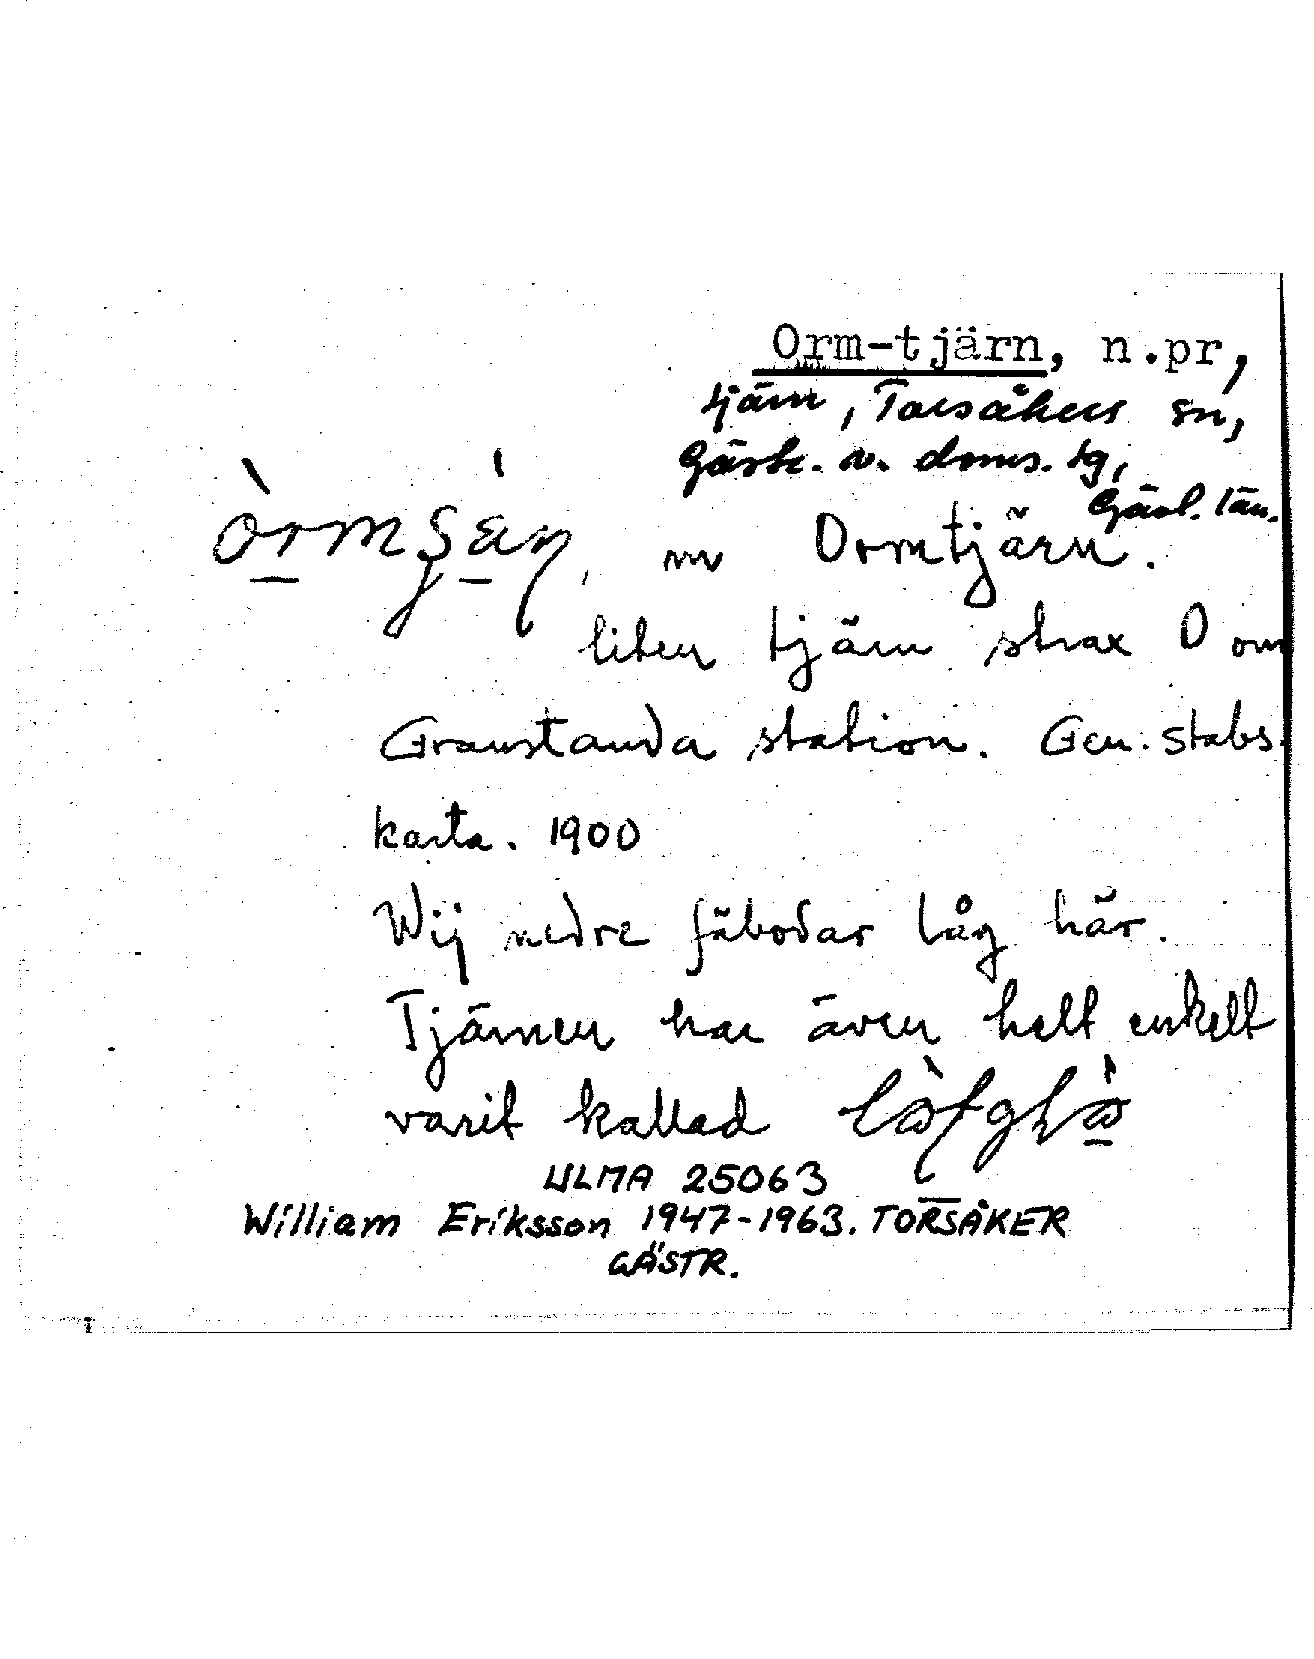 Orm-tjärn, n.pr,
tjärn, Torsåkers sn,
Gästr. v. doms. tg,
Gävl. län.
nu Ormtjärn.
liten tjärn strax O om
Granstanda station. Gen. stabs.
karta. 1900
Wij nedre fäbodar låg här.
Tjärnen har även helt enkelt
varit kallad
ULMA 25063
William Eriksson 1947-1963. TORSÅKER
GÄSTR.